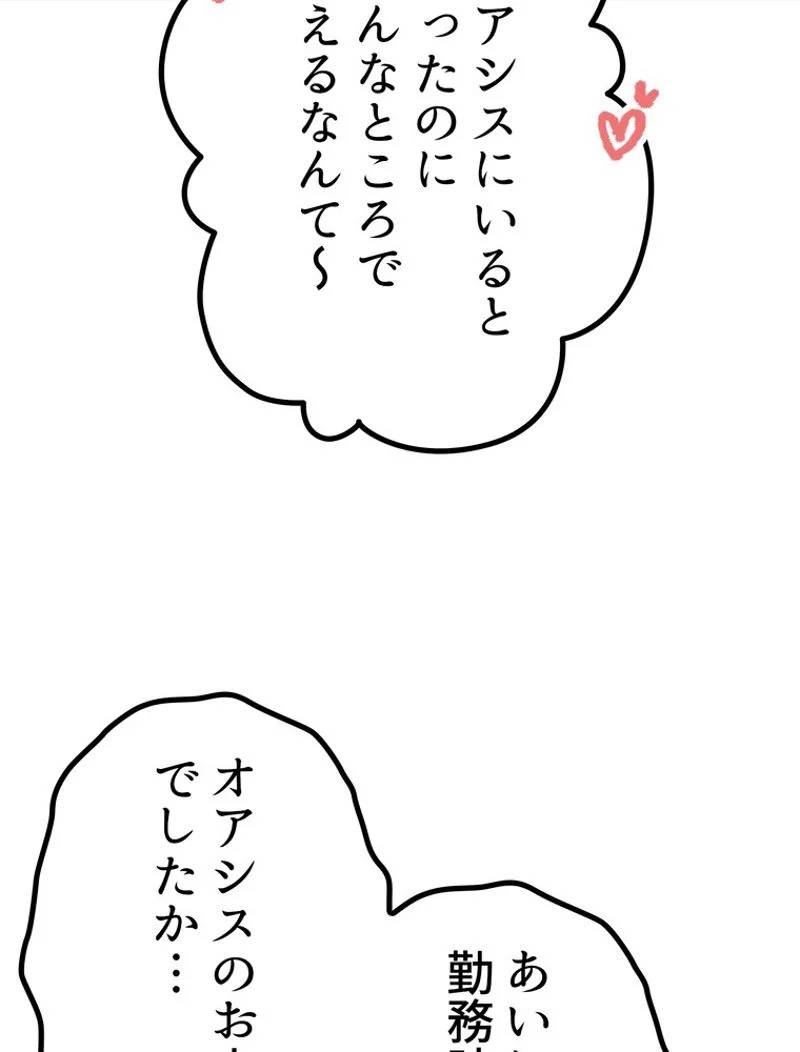 アシスにいると
ったのに
んなところで
えるなんて〜
オアシスのお
でしたか…
あい
勤務